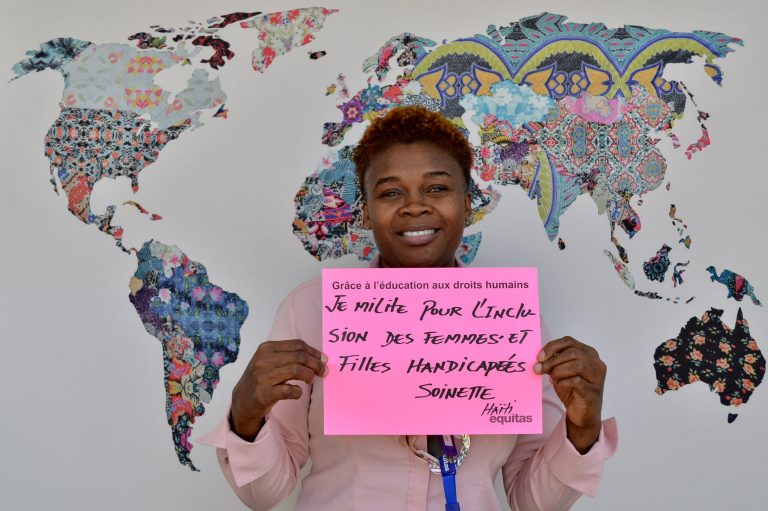 Grâce à l'éducation aux droits humains
Je milite pour l'inclu
sion des femmes et
filles handicapées
Soinette
Haïti
equitas